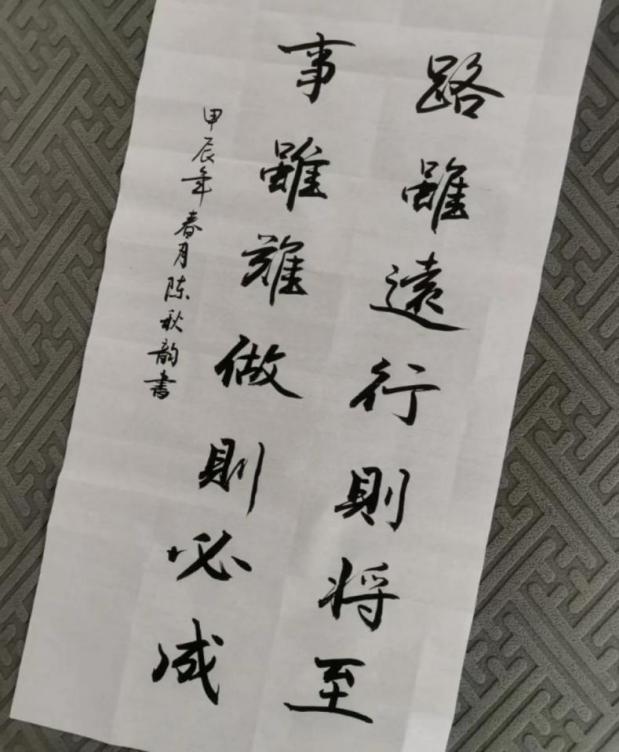 路雖遠行則将至
事雖難做則必成
甲辰年春月陈秋韵書